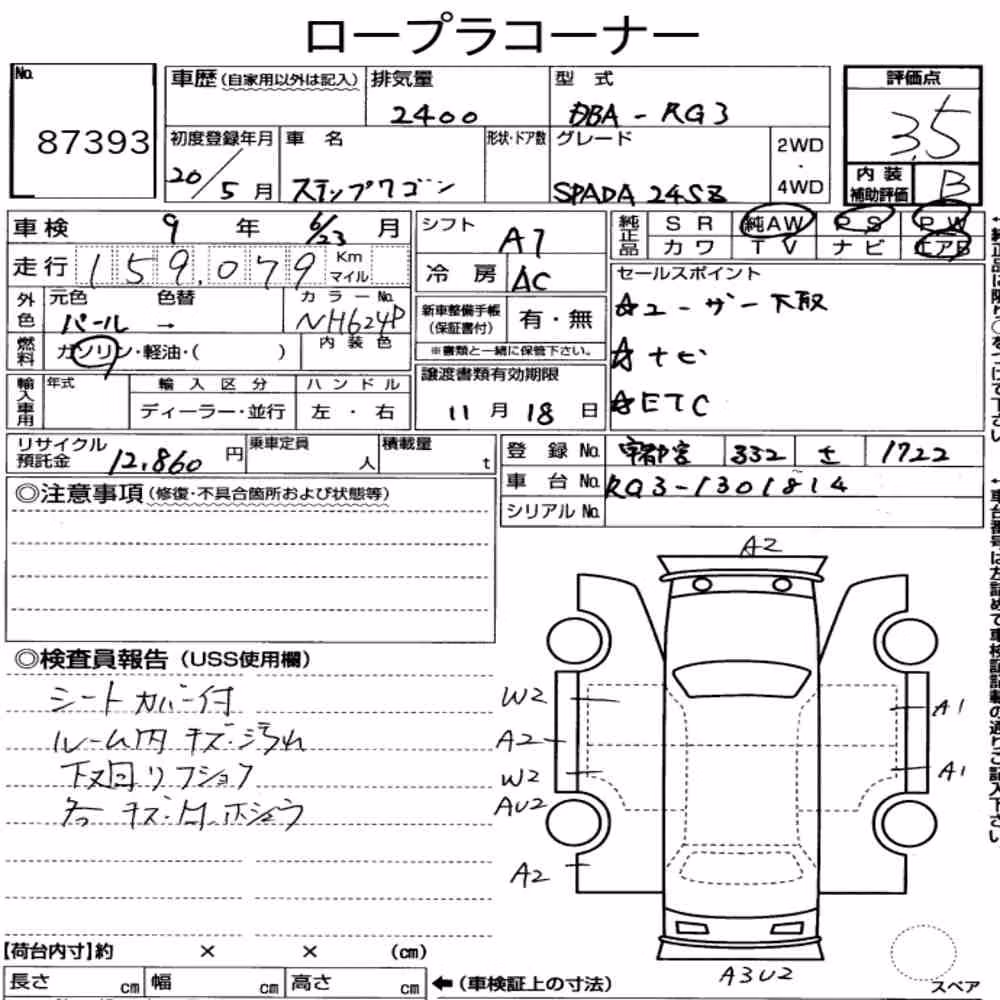 ロープラコーナー
No.
87393
車歴(自家用以外は記入)
排気量
2400
型式
DBA-RG3
評価点
3.5
内装
補助評価
B
初度登録年月
20/5月
車名
ステップワゴン
形状・ドア数
グレード
SPADA 24SZ
2WD
・
4WD
車検 9年 6/23月
走行 159,079 Km
マイル
シフト
AT
冷房
AC
純正品
SR 純AW PS PW
カワ TV ナビ エアB
セールスポイント
☆ユーザー下取
☆ナビ
☆ETC
外色
元色
パール
色替
→
カラーNo.
NH624P
燃料
ガソリン・軽油・( )
内装色
新車整備手帳
(保証書付)
有・無
※書類と一緒に保管下さい。
輸入車用
年式
輸入区分
ディーラー・並行
ハンドル
左・右
譲渡書類有効期限
11月18日
リサイクル
預託金
12,860円
乗車定員
人
積載量
t
登録No. 宇都宮 332 さ 1722
車台No. RG3-1301814
シリアルNo.
◎注意事項(修復・不具合箇所および状態等)
◎検査員報告(USS使用欄)
シートカバー付
ルーム内キズ・汚れ
下回リフショク
各キズ・凹、ホシュウ
A2
W2
A2
W2
AU2
A2
A1
A1
A3U2
スペア
【荷台内寸】約 × × (cm)
長さ cm 幅 cm 高さ cm
←(車検証上の寸法)
←純正品は限り○をつけて下さい
←車台番号は左詰めで車検証記載の通りご記入下さい